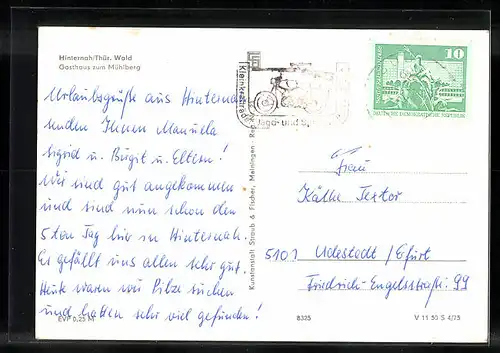 Hinternah/Thür. Wald
Gasthaus zum Mühlberg
Urlaubsgrüße aus Hinternah
senden Ihnen Manuela
Sigrid u. Birgit u. Eltern!
Wir sind gut angekommen
und sind nun schon den
5ten Tag hier in Hinternah.
Es gefällt uns allen sehr gut.
Heute waren wir Pilze suchen
und hatten sehr viel gefunden!
EVP 0,25 M
Kunstanstalt Straub & Fischer, Meiningen
Kleinkrafträder
Jagd- und
10
DEUTSCHE DEMOKRATISCHE REPUBLIK
Frau
Käthe Textor
5101 Udestedt/Erfurt
Friedrich-Engelsstraße 99
8325
V 11 50 S 4/75